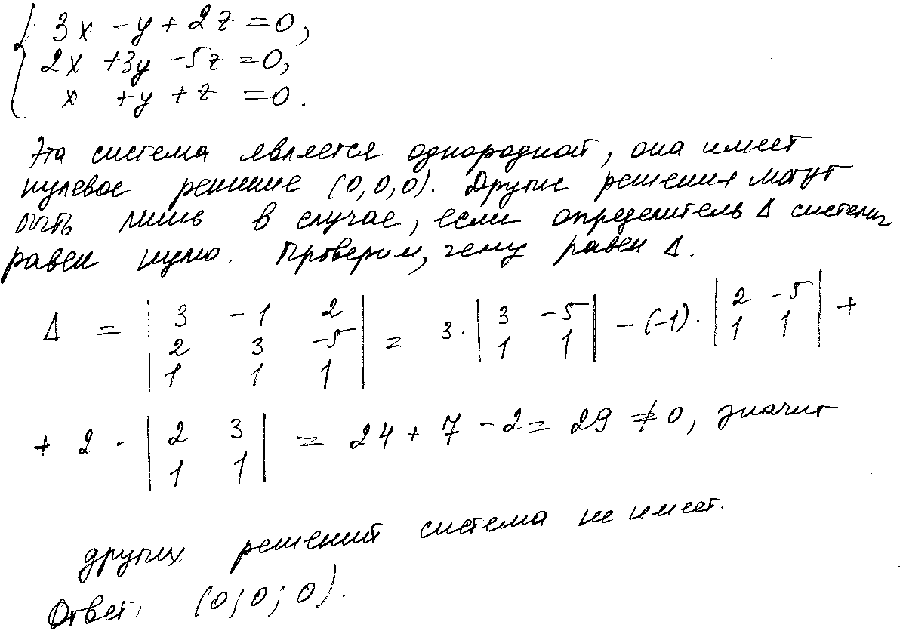 3x - y + 2z = 0,
2x + 3y - 5z = 0,
x + y + z = 0.
Эта система является однородной, она имеет
нулевое решение (0,0,0). Другие решения могут
быть лишь в случае, если определитель Δ системы
равен нулю. Проверим, чему равен Δ.
Δ = | 3 -1 2 | = 3 · | 3 -5 | - (-1) · | 2 -5 | +
| 2 3 -5 | | 1 1 | | 1 1 |
| 1 1 1 |
+ 2 · | 2 3 | = 24 + 7 - 2 = 29 ≠ 0, значит
| 1 1 |
других решений система не имеет.
Ответ: (0; 0; 0).